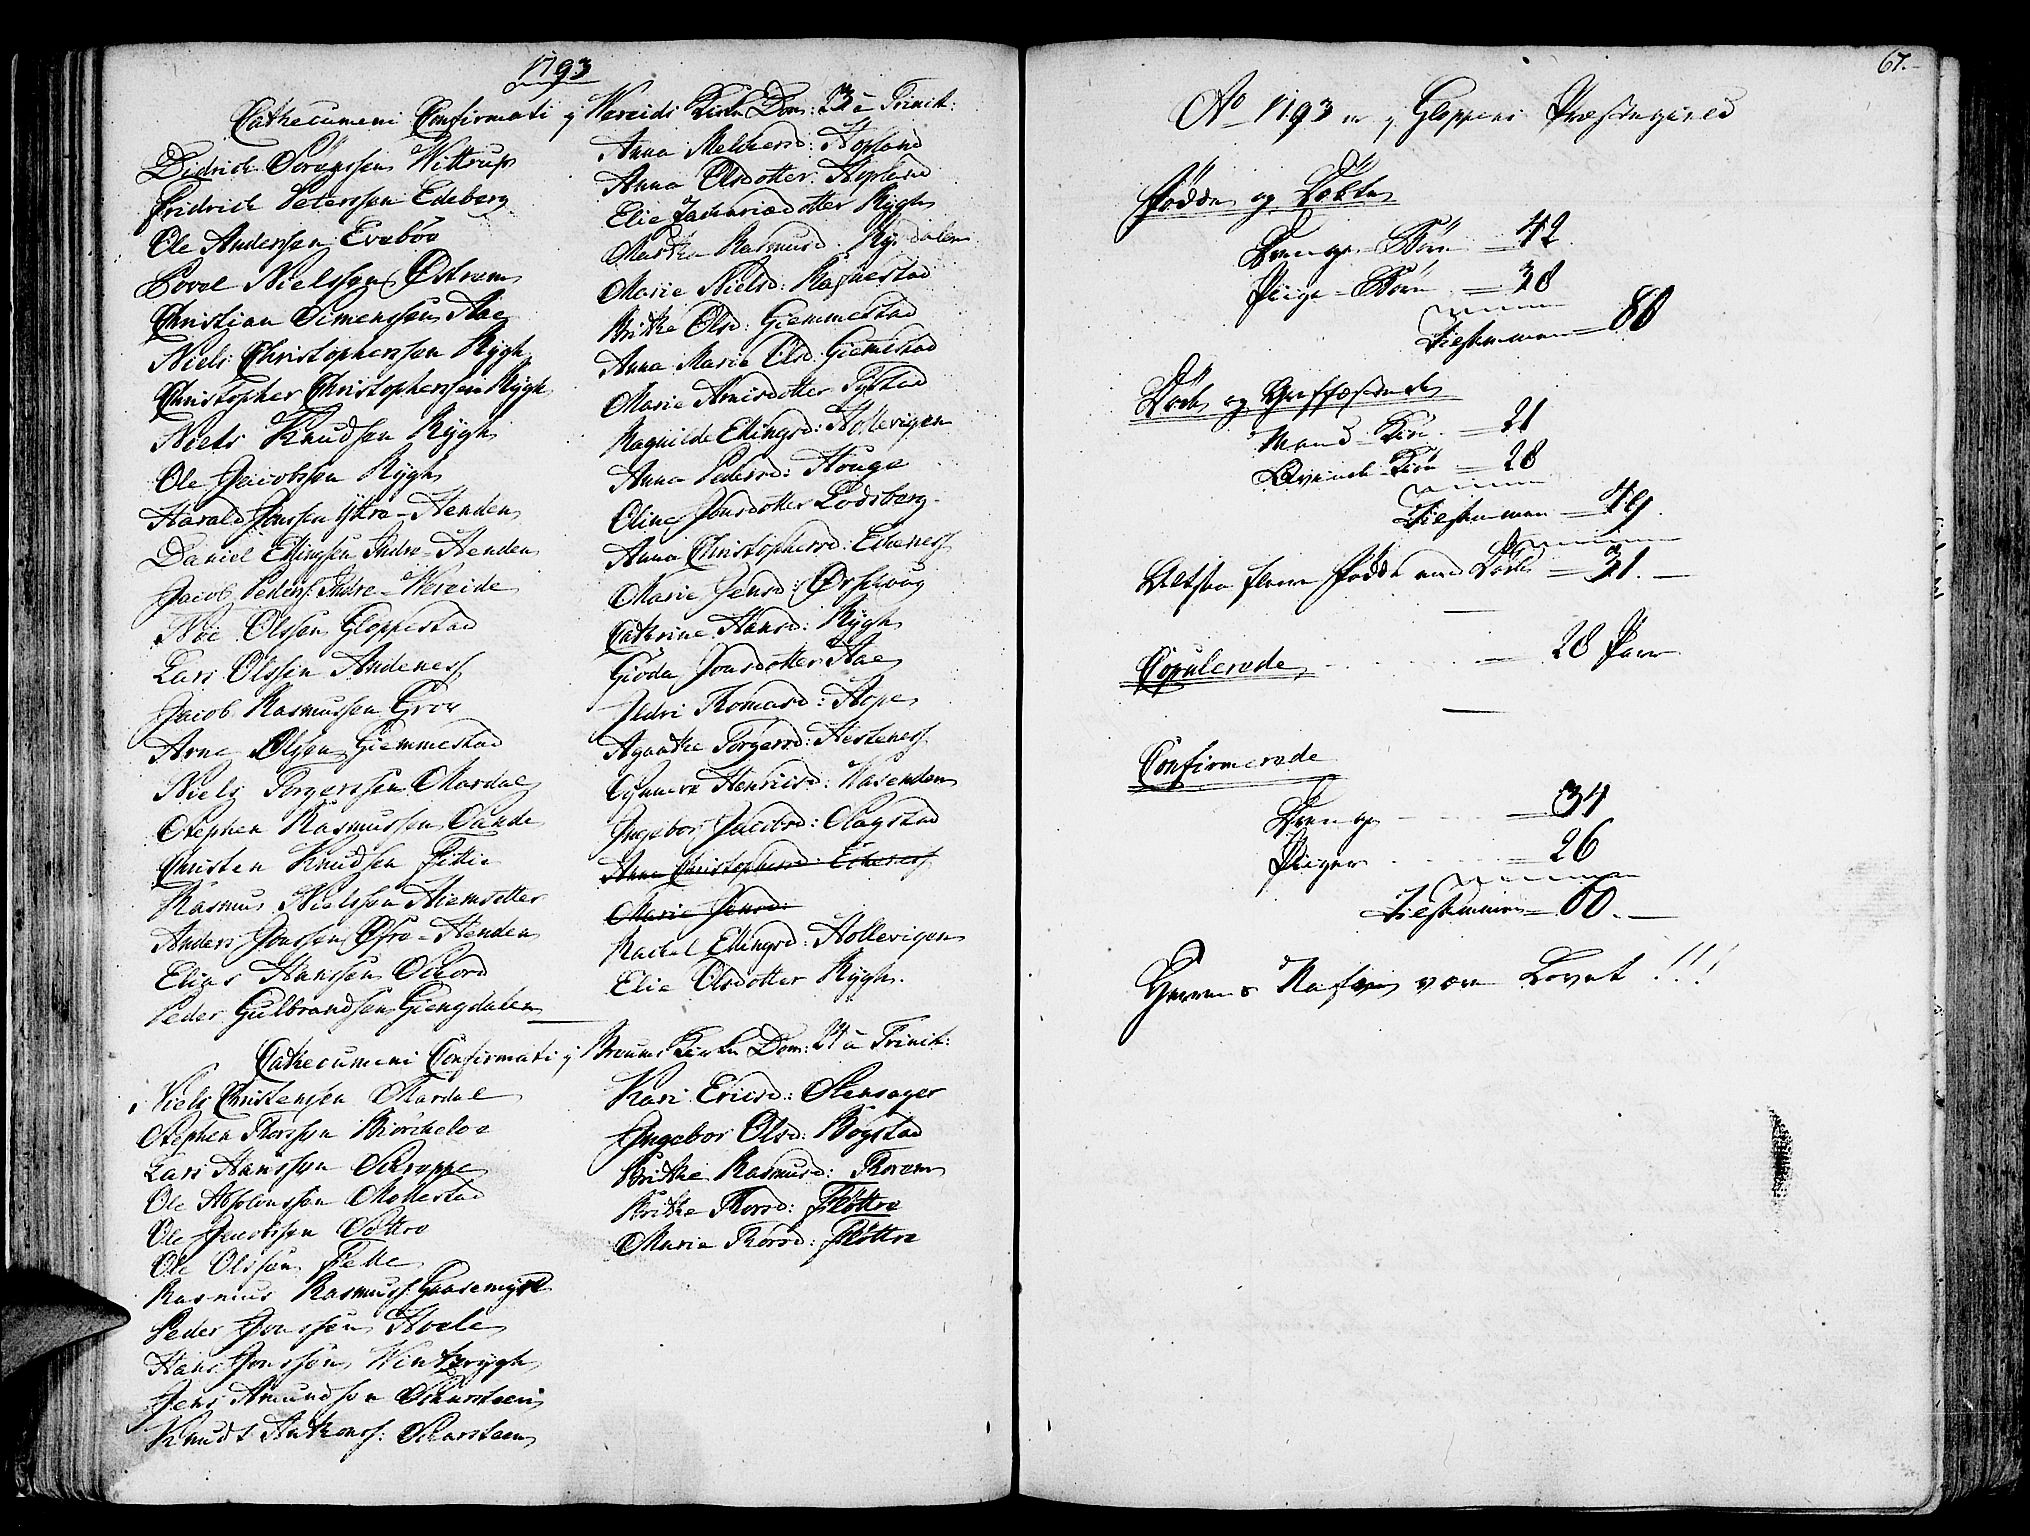 1793
Cathecumeni Confirmati i Wereids Kirke Dom: 23 a Trinit:
Didrich Sörenssen Wittrup
Fridrich Peterssen Edeberg
Ole Anderssen Eveböe
Povel Nielssen Østrem
Christian Simenssen Aae
Niels Christopherssen Rygh
Christopher Christopherssen Rygh
Niels Knudsen Rygh
Ole Jacobssen Rygh
Harald Jonssen Yttre-Henden
Daniel Ellingsen Indre-Henden
Jacob Peders: Indre-Wereide
Noe Olssen Gloppestad
Lars Olssen Andeness
Jacob Rasmussen Gröv
Arne Olssen Giemmestad
Niels Torgerssen Mardal
Stephen Rasmussen Sande
Christen Knudsen Fittie
Rasmus Nielssen Hiemsetter
Anders Jonssen Øfre-Henden
Elias Hanssen Schord
Peder Gulbrandsen Giengedalen
Anna Melchersd: Hopland
Anna Olsdotter Hopland
Elie Zachariædotter Rygh
Martha Rasmusd: Rysdalen
Marie Nielsd: Ragnestad
Brithe Olsd: Giemmestad
Anna Marie Olsd: Giemestad
Marie Arnisdotter Tystad
Ragnilde Ellingsd: Hollevigen
Anna Pedersd: Houge
Eline Jonsdotter Lodsberg
Anna Christophersd: Echeness
Marie Jensd: Ørsevaag
Cathrine Hansd: Rygh
Giöda Jonsdotter Aae
Ildri Thomasd: Hope
Agathe Torgersd: Hesteness
Synneve Henricsd: Wasenden
Ingebor Jacobsd: Slagstad
Anna Christophersd: Echeness
Marie Jensd:
Rachel Ellingsd: Hollevigen
Elie Olsdotter Rygh.
Cathecumeni Confirmati i Breums Kirke Dom: 24 a Trinit:
Niels Christensen Mardal
Stephen Thorssen Biörcheloe
Lars Hanssen Schreppe
Ole Absalonssen Mollestad
Ole Jacobssen Söttre
Ole Olssen Felle
Rasmus Rasmuss: Gaasemyr
Peder Jonssen Hoele
Hans Jonssen Winterrygh
Jens Amundsen Scharsteen
Knudt Anthons: Scharsteen
Kari Ericsd: Stensager
Ingebor Olsd: Bögstad
Brithe Rasmusd: Thorem
Brithe Thorsd: Flöttre
Marie Thorsd: Flöttre
67.
Ao 1793 er i Gloppens Præstegield
Födde og Döbte
Drenge-Börn = 42.
Piige-Börn = 38
Tilsammen = 80
Döde og Begravede
Mand-Kiön = 21
Qvinde-Kiön = 28
Tilsammen = 49.
Altsaa flere Födde end Döde = 31.
Copulerede - - - 28 Paar
Confirmerede
Drenge - - - = 34
Piiger - - - = 26
Tilsammen = 60.
Herrens Nafn være Lovet!!!